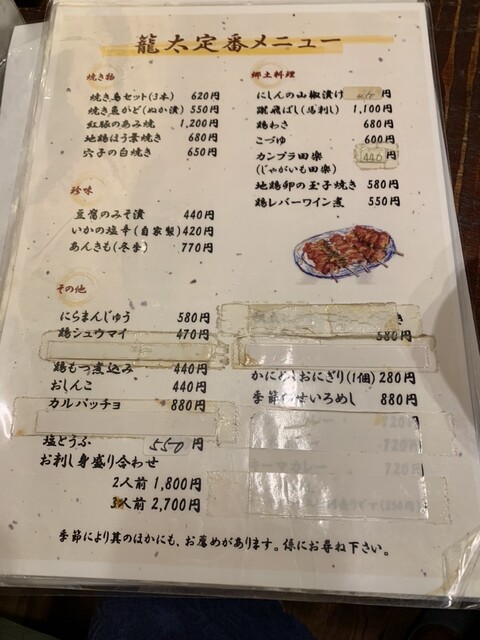 龍太定番メニュー
焼き物
焼き鳥セット(3本) 620円
焼き魚がど(ぬか漬) 550円
紅豚のあみ焼 1,200円
地鶏ほう葉焼き 680円
穴子の白焼き 650円
珍味
豆腐のみそ漬 440円
いかの塩辛(自家製) 420円
あんきも(冬季) 770円
その他
にらまんじゅう 580円
鶏シュウマイ 470円
鶏もつ煮込み 440円
おしんこ 440円
カルパッチョ 880円
塩どうふ 550円
お刺し身盛り合わせ
2人前 1,800円
3人前 2,700円
郷土料理
にしんの山椒漬け 円
蹴飛ばし(馬刺し) 1,100円
鶏わさ 680円
こづゆ 600円
カンプラ田楽 440円
(じゃがいも田楽)
地鶏卵の玉子焼き 580円
鶏レバーワイン煮 550円
580円
おにぎり(1個) 280円
せいろめし 880円
カレー 720円
720円
キーマカレー 720円
季節により其のほかにも、お薦めがあります。係にお尋ね下さい。